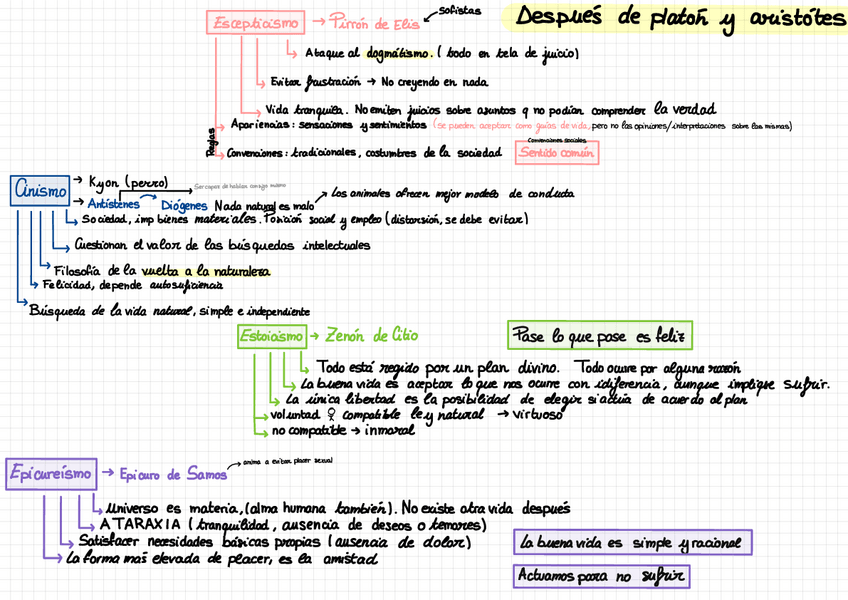 Después de platón y aristótes
Escepticismo → Pirrón de Elis
sofistas
Ataque al dogmátismo. (todo en tela de juicio)
Evitar frustración → No creyendo en nada
Vida tranquila. No emiten juicios sobre asuntos q no podían comprender la verdad
Reglas
Apariencias: sensaciones y sentimientos (se pueden aceptar como guías de vida, pero no las opiniones/interpretaciones sobre las mismas)
Convenciones: tradicionales, costumbres de la sociedad
Convenciones sociales
Sentido común
Cinismo
→ Kyon (perro)
Ser capaz de hablar consigo mismo
→ Antístenes
Diógenes Nada natural es malo
Los animales ofrecen mejor modelo de conducta
Sociedad, imp bienes materiales. Posición social y empleo (distorsión, se debe evitar)
Cuestionan el valor de las búsquedas intelectuales
Filosofía de la vuelta a la naturaleza
Felicidad, depende autosuficiencia
Búsqueda de la vida natural, simple e independiente
Estoicismo → Zenón de Citio
Pase lo que pase es feliz
Todo está regido por un plan divino. Todo ocurre por alguna razón
La buena vida es aceptar lo que nos ocurre con idiferencia, aunque implique sufrir.
La única libertad es la posibilidad de elegir si actúa de acuerdo al plan
voluntad compatible ley natural → virtuoso
no compatible → inmoral
Epicureísmo → Epicuro de Samos
anima a evitar placer sexual
Universo es materia, (alma humana también). No existe otra vida después
ATARAXIA (tranquilidad, ausencia de deseos o temores)
Satisfacer necesidades básicas propias (ausencia de dolor)
La forma más elevada de placer, es la amistad
La buena vida es simple y racional
Actuamos para no sufrir